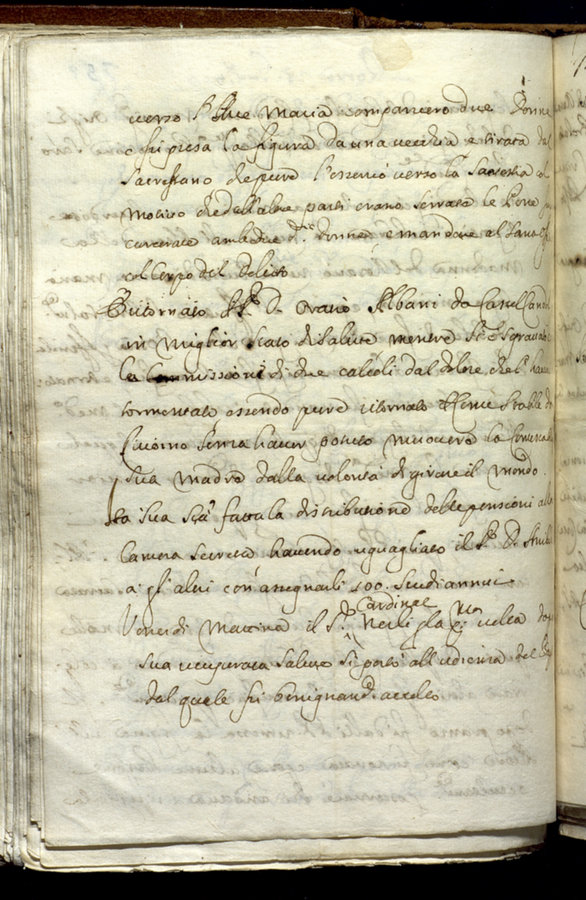 verso l'Ave Maria comparvero due Donne
e fu presa la figura da una vecchia e tirata dal
Sacrestano che pure l'osservò verso la Sacrestia col
motivo che dall'altre parti erano serrate le Porte
carcerate ambedue d.e Donne e mandate al
col Corpo del delicto
Ritornato il S.r D. Oratio Albani da Castel Gandolfo
in miglior stato di salute mentre si è sgravato
di due calcoli dal dolore che l'
tormentato essendo pure ritornato il
Livorno senza haver potuto muovere la
sua madre dalla volontà di girare il mondo.
Ha sua S.tà fatta la distributione delle pensioni alla
Camera secreta havendo uguagliato il S.r D.
a gl'altri con assegnarli 100. scudi annui
Venerdi Mattina il S.r Cardinal Nerli p la p.a volta
sua recuperata salute si portò all'udienza del
dal quale fu benignam.te accolto